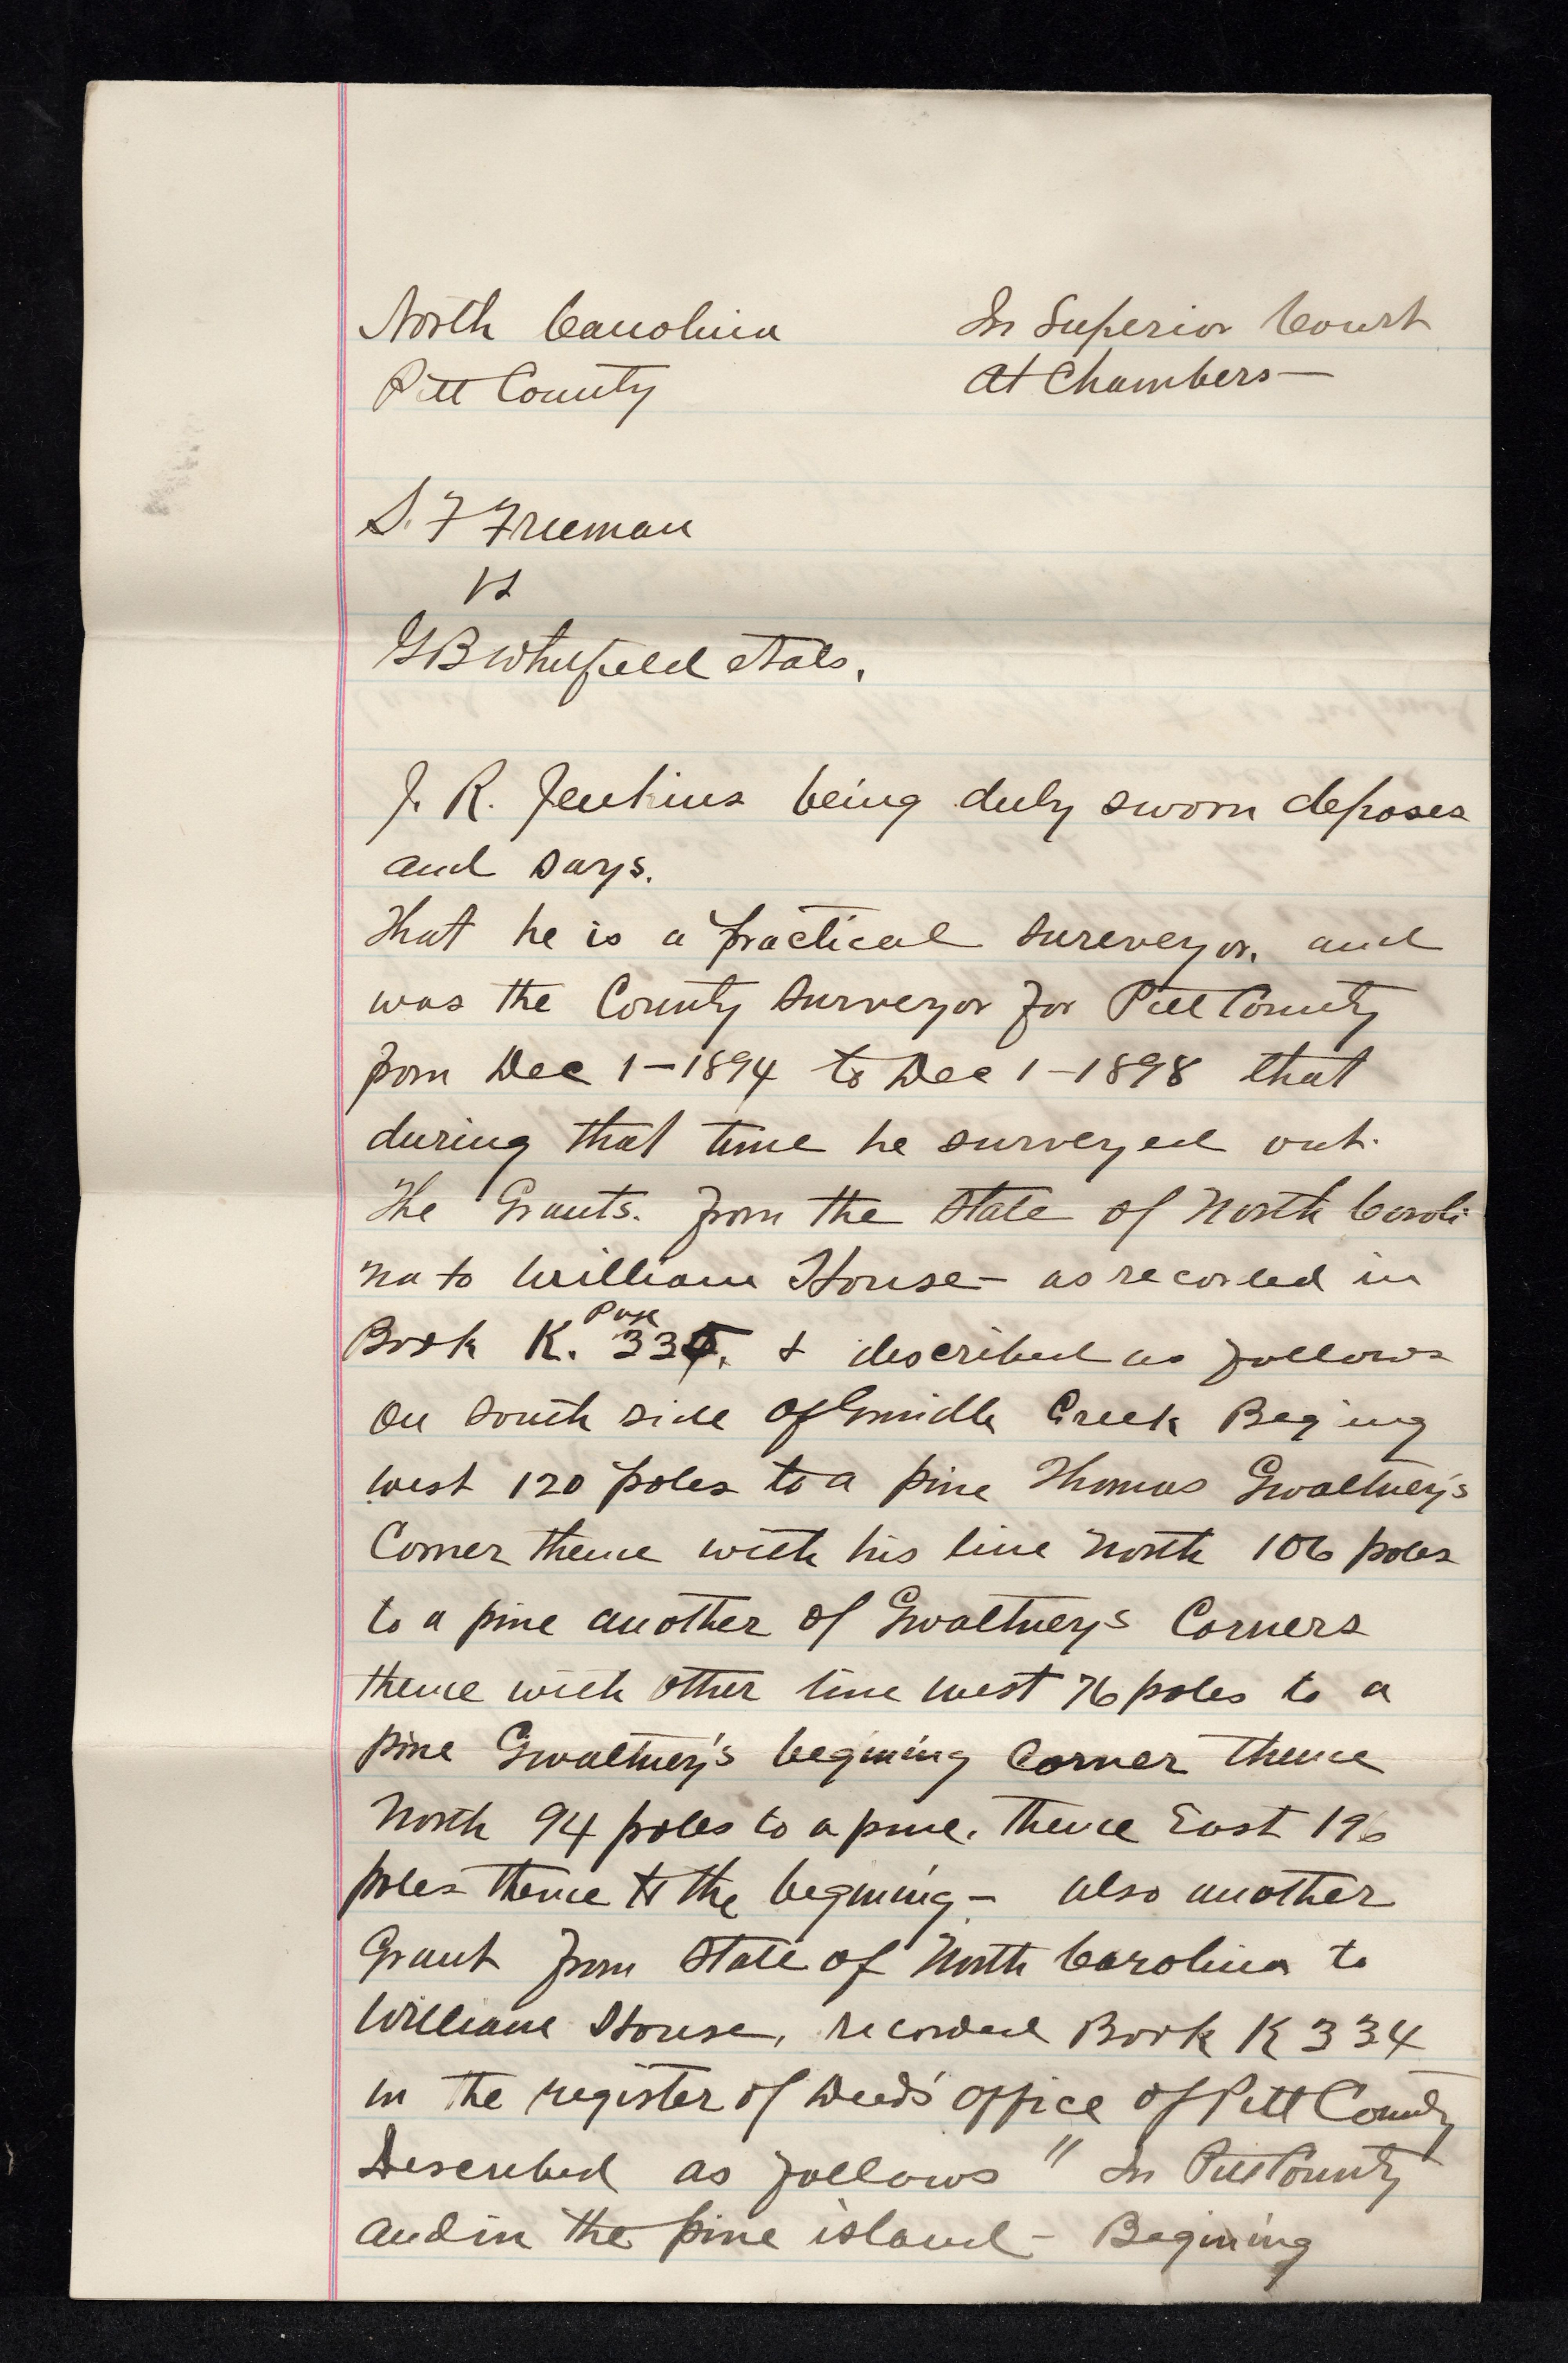 North Carolina In Superior Court
Pitt County At Chambers—
S. F Freeman
vs
G B Whitfield et als.
J. R. Jenkins being duly sworn deposes
and says.
That he is a practical sureveyor, and
was the County Surveyor for Pitt County
from Dec 1–1894 to Dec 1–1898 that
during that time he surveyed out.
The Grants. from the State of North Caroli
na to William House– as recorded in
Page
Book K. 335, & described as follows
on south side of Grindle Creek Begining
west 120 poles to a pine Thomas Gwaltney's
Corner thence with his line North 106 poles
to a pine another of Gwaltneys Corners
thence with other line west 76 poles to a
pine Gwaltney's begining Corner thence
North 94 poles to a pine. thence East 196
poles thence to the begining– also another
Grant from State of North Carolina to
William House, recorded Book K 334
in the register of Deeds' office of Pitt County
Described as follows " In Pitt County
and in the pine island– Begining